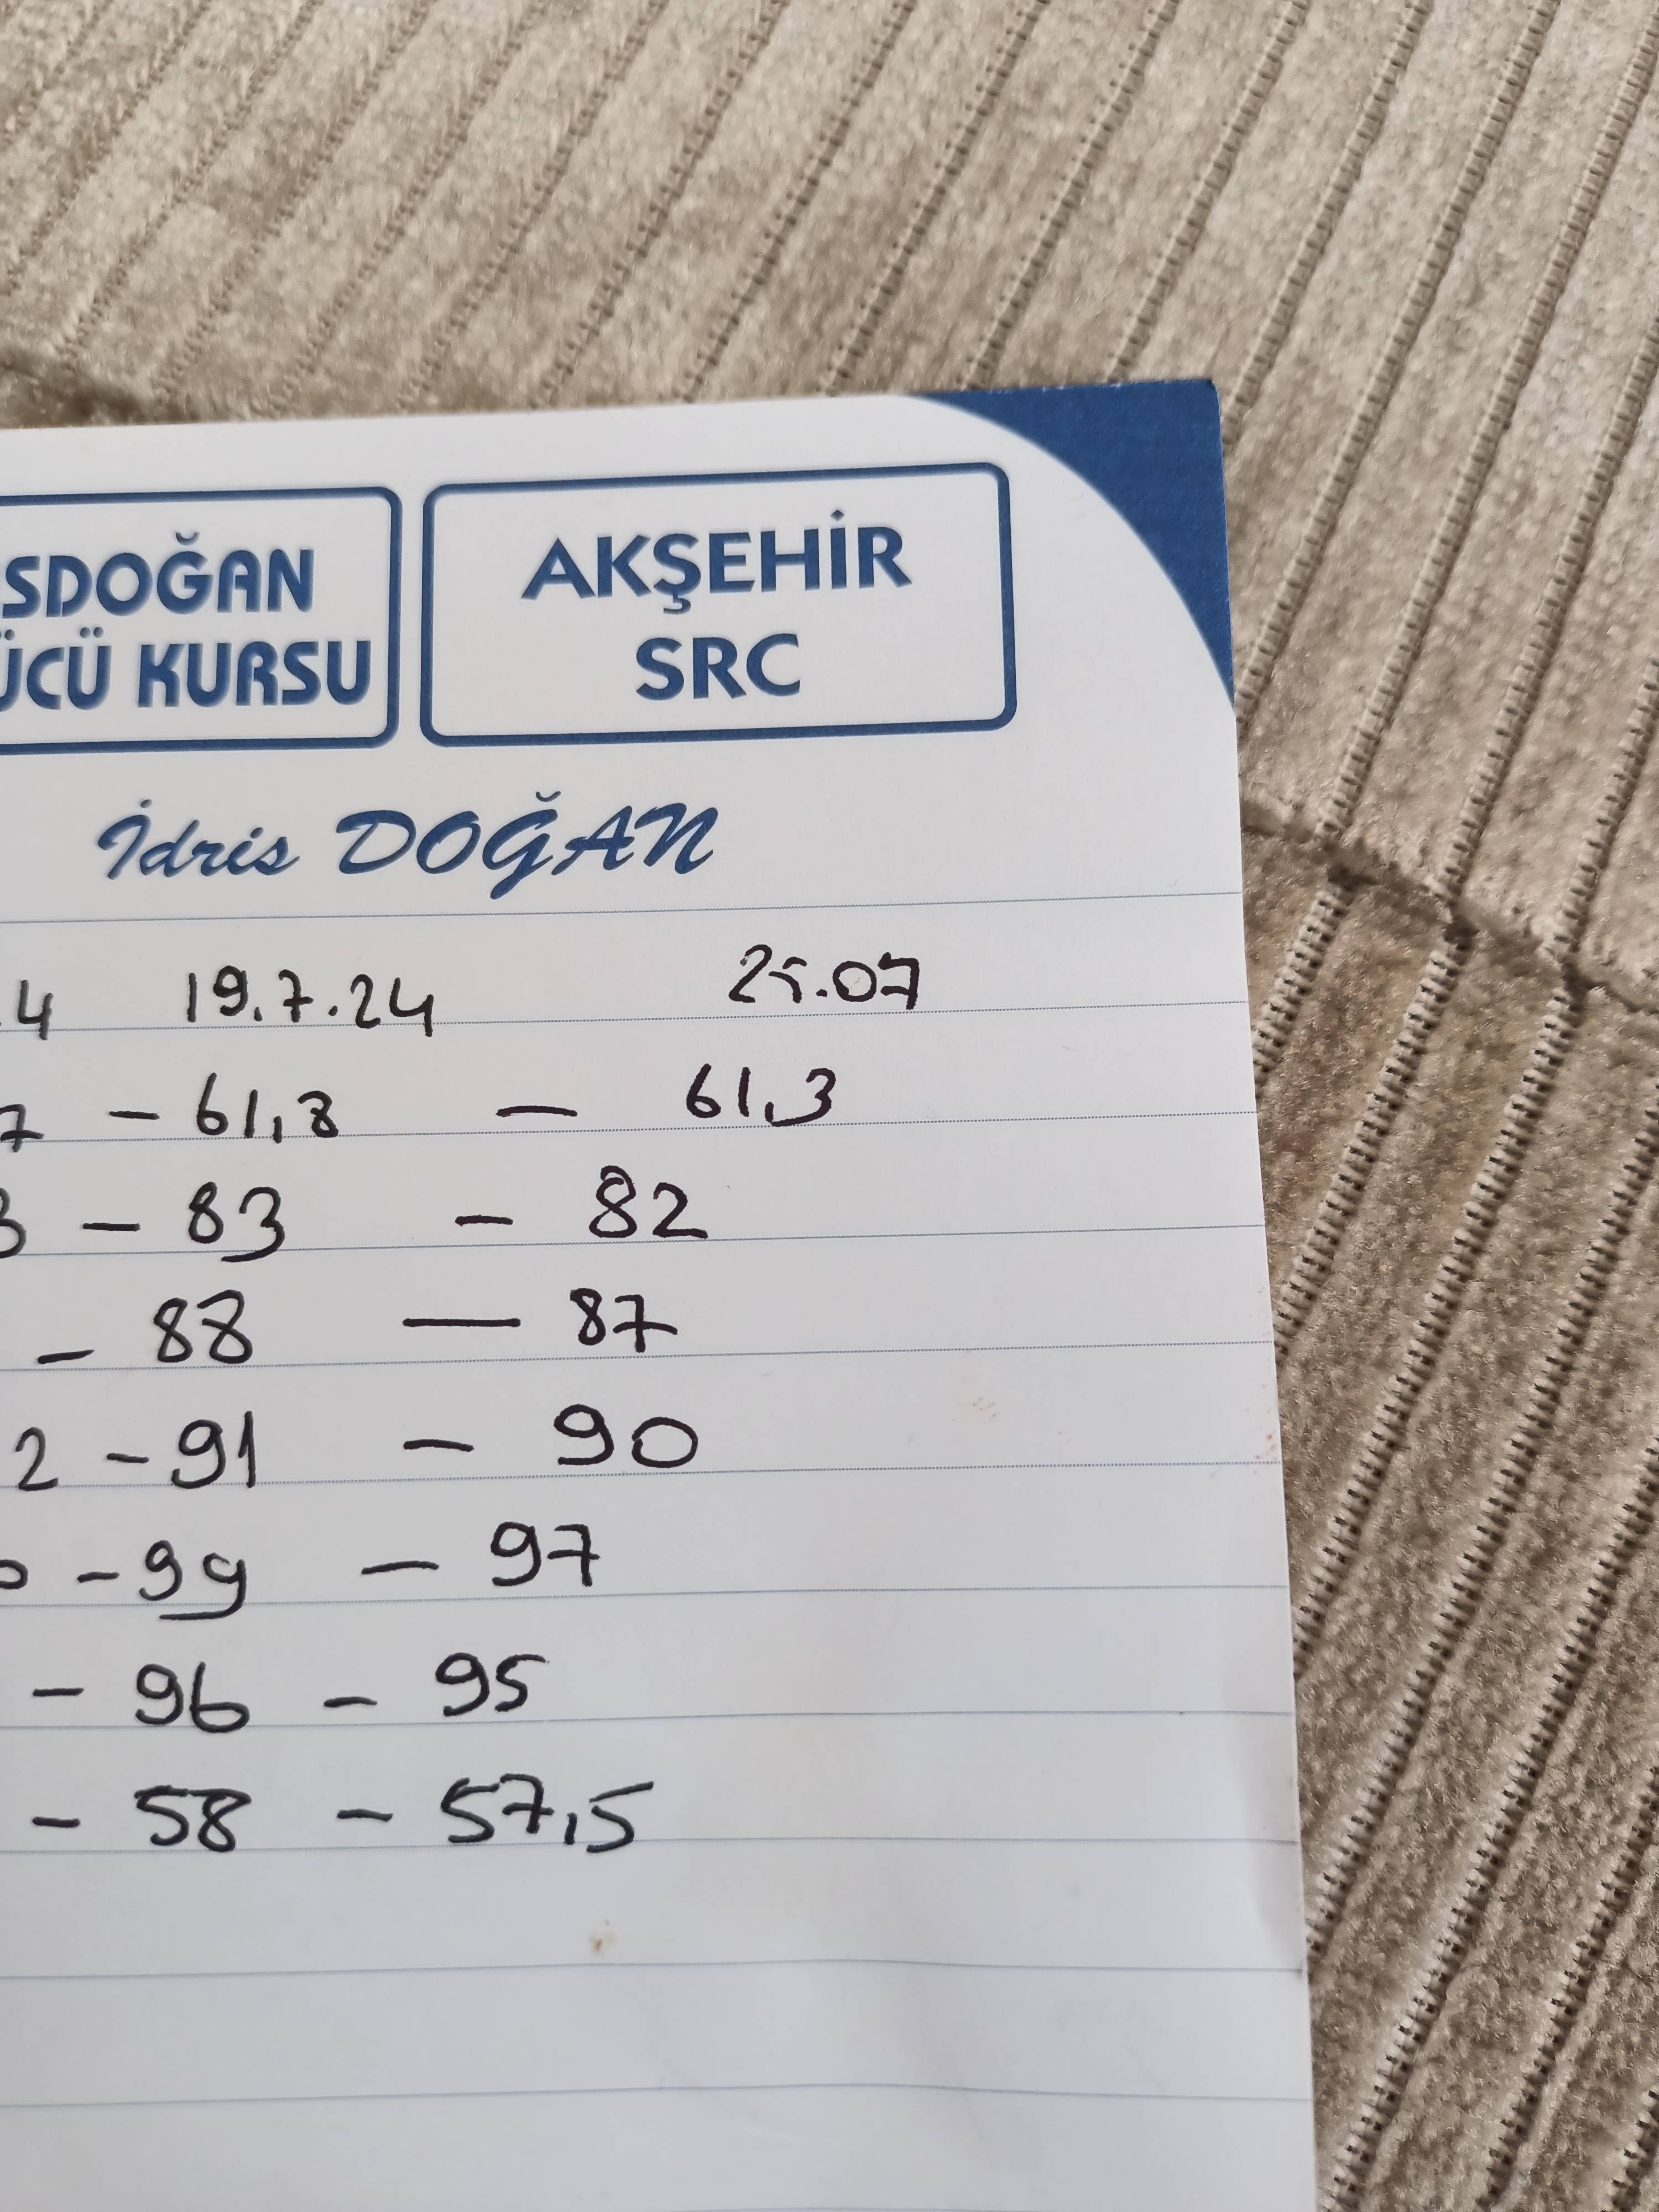 SDOĞAN
ÜCÜ KURSU
AKŞEHİR
SRC
İdris DOĞAN
.4 19.7.24 25.07
7 - 61,8 - 61,3
3 - 83 - 82
- 88 - 87
2 - 91 - 90
0 - 99 - 97
- 96 - 95
- 58 - 57,5